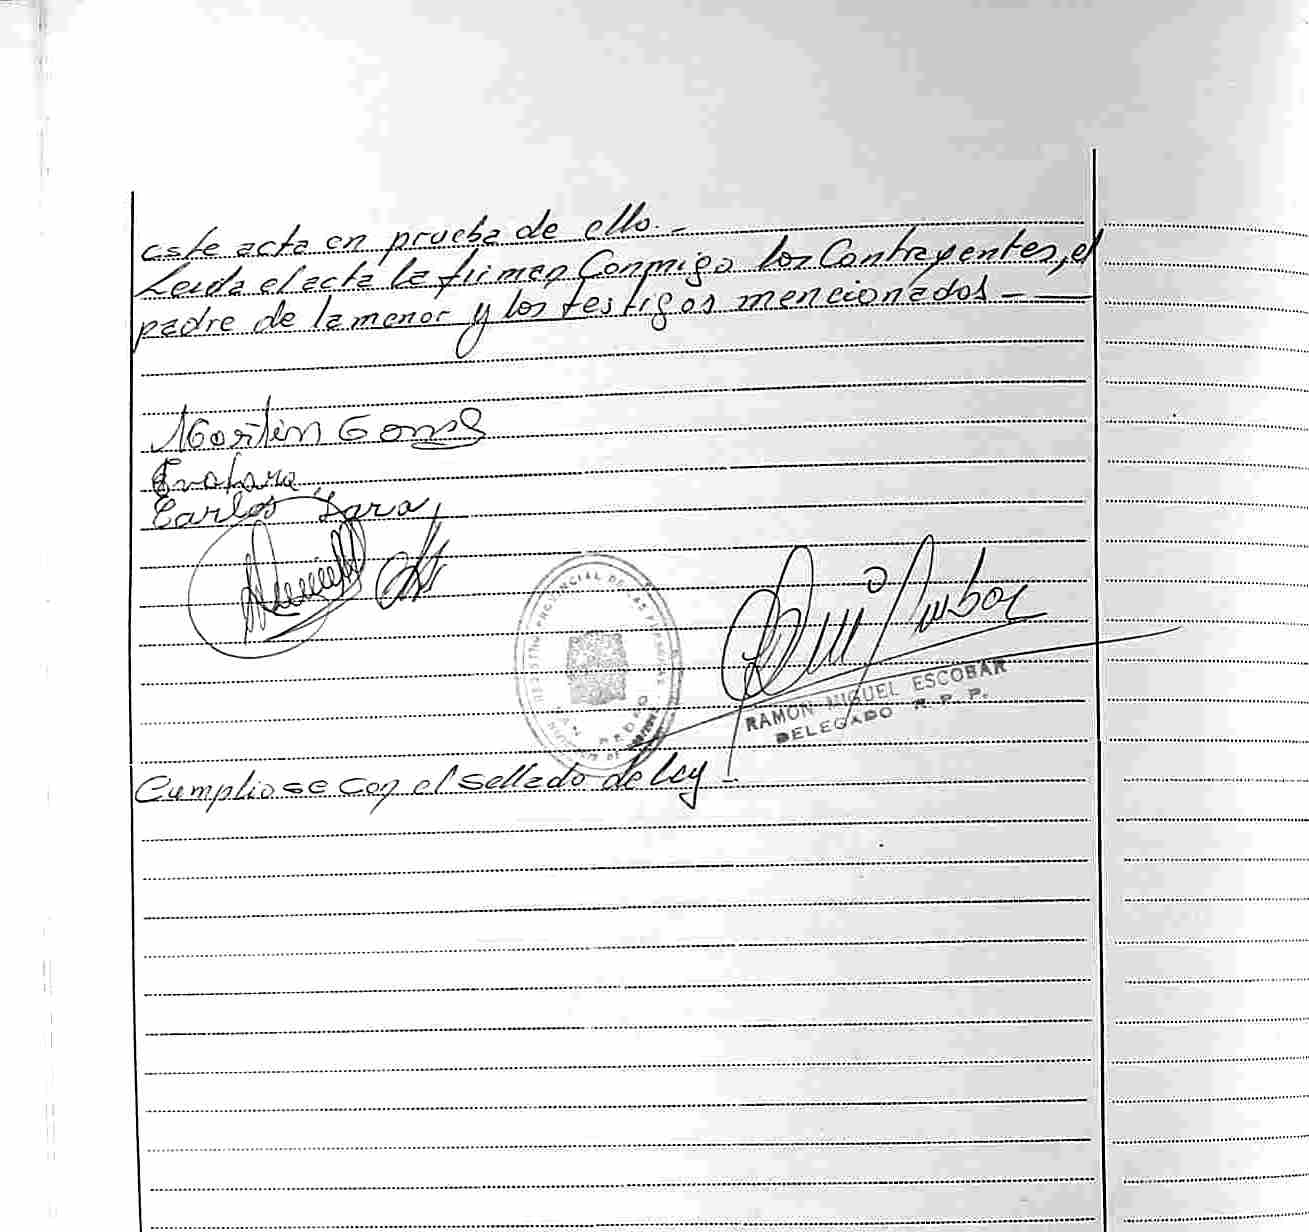 este acta en prueba de ello. -
Leida el acta la firman Conmigo los Contrayentes, el
padre de la menor y los testigos mencionados - —
Martin Gomes
Carlos Lara
REGISTRO PROVINCIAL DE LAS PERSONAS
SAN PEDRO
RAMON MIGUEL ESCOBAR
DELEGADO R. P. P.
Cumpliose con el sellado de ley -